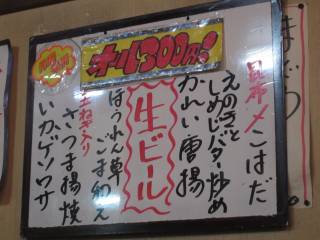 オール300円!
昆布〆こはだ
えのきと
しめじバター炒め
かれい唐揚
生ビール
ほうれん草
ごま和え
玉ねぎ入り
さつま揚焼
いかゲソワサ
まぐろ